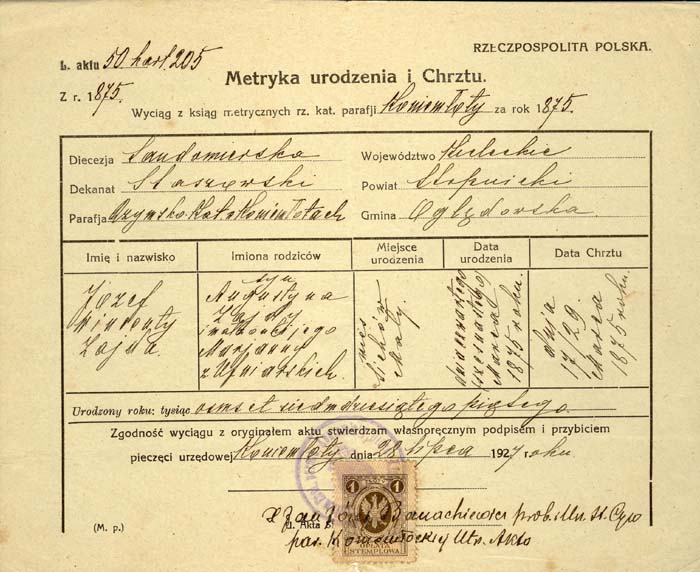 RZECZPOSPOLITA POLSKA.
L. aktu 50 kart. 205
Metryka urodzenia i Chrztu.
Z r. 1875.
Wyciąg z ksiąg metrycznych rz. kat. parafji Koniemłoty za rok 1875.
Diecezja Sandomierska
Województwo Kieleckie
Dekanat Staszowski
Powiat Stopnicki
Parafja Rzymsko-Kat. Koniemłotach
Gmina Oględowska.
Imię i nazwisko
Imiona rodziców
Miejsce urodzenia
Data urodzenia
Data Chrztu
Józef
Wincenty
Zajda.
syn
Augustyna
Zajdy
i małżonki jego
Marjanny
z
wieś
Sichów
Mały.
Marca
1875 roku.
dnia
17/29.
Marca
1875 roku.
Urodzony roku: tysiąc ośmset siedmdziesiątego piątego.
Zgodność wyciągu z oryginałem aktu stwierdzam własnoręcznym podpisem i przybiciem
pieczęci urzędowej Koniemłoty dnia 28 lipca 1927 roku
1 1
OPŁATA
STEMPLOWA
(M. p.)
X Jan Banachiewicz prob. Urz. St. Cyw
par. Koniemłockiej Utr. Akta